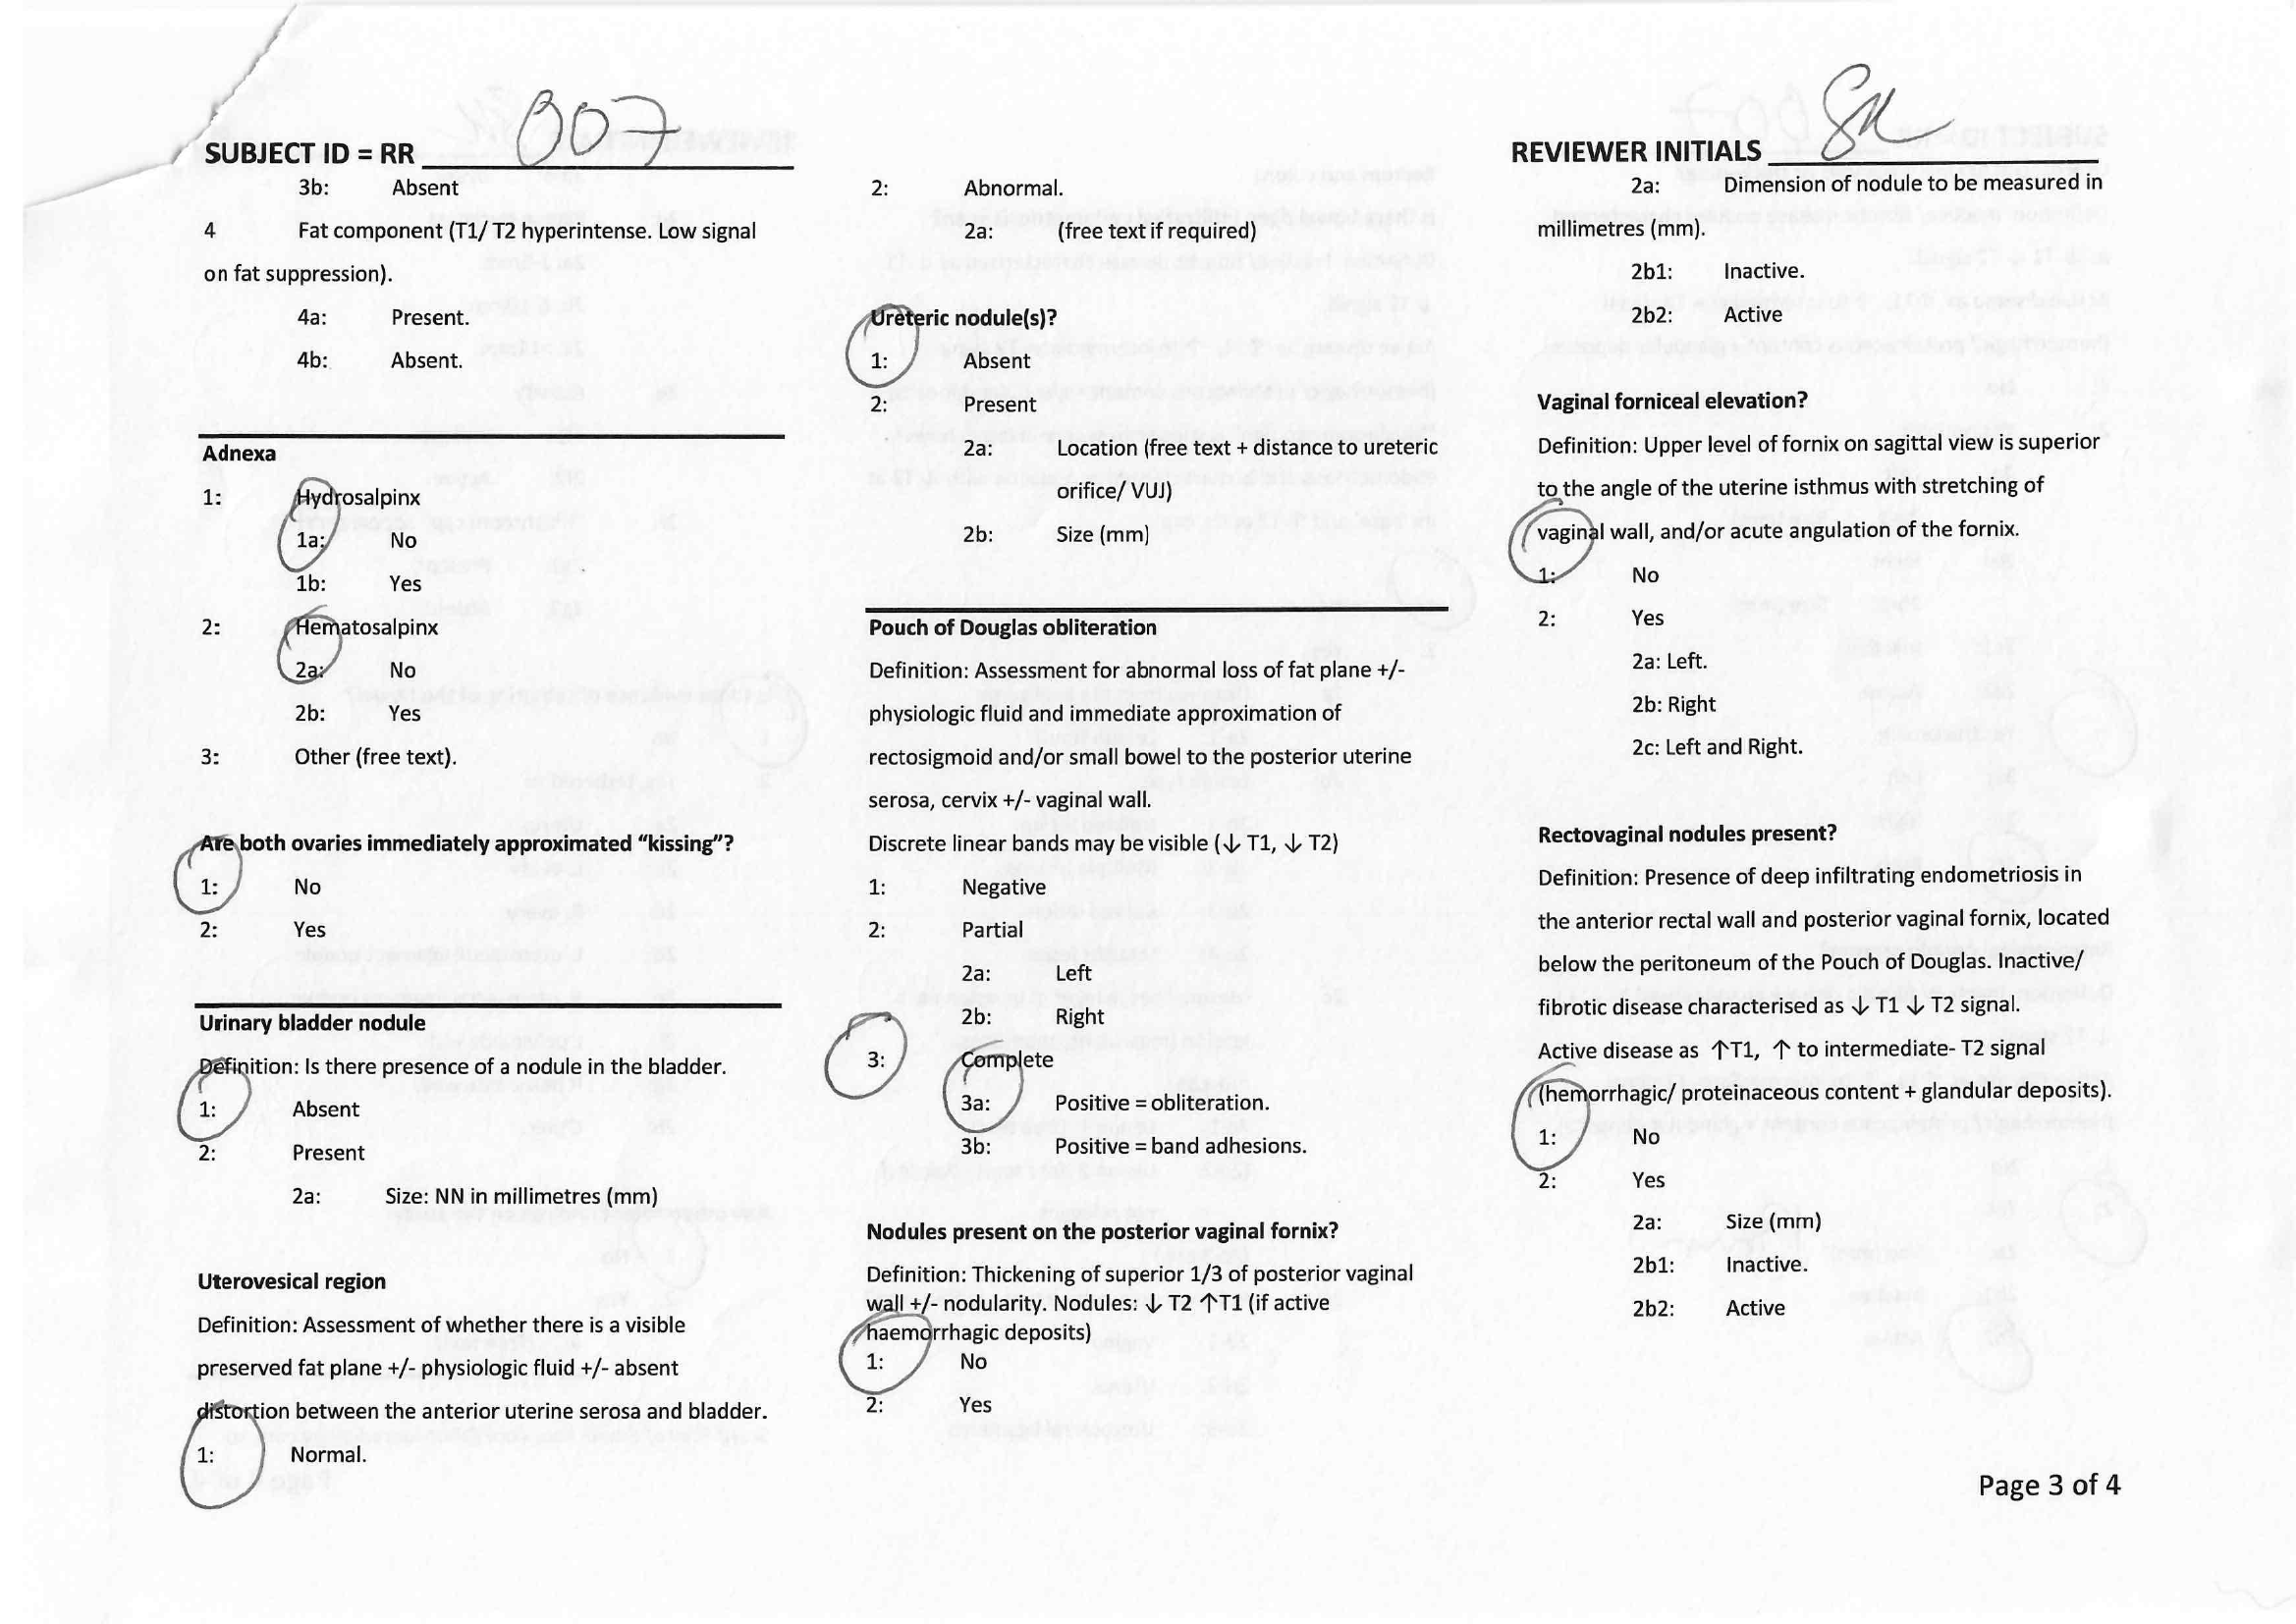 SUBJECT ID = RR 007
3b: Absent
4 Fat component (T1/ T2 hyperintense. Low signal
on fat suppression).
4a: Present.
4b: Absent.
Adnexa
1: Hydrosalpinx
1a: No
1b: Yes
2: Hematosalpinx
2a: No
2b: Yes
3: Other (free text).
Are both ovaries immediately approximated “kissing”?
1: No
2: Yes
Urinary bladder nodule
Definition: Is there presence of a nodule in the bladder.
1: Absent
2: Present
2a: Size: NN in millimetres (mm)
Uterovesical region
Definition: Assessment of whether there is a visible
preserved fat plane +/- physiologic fluid +/- absent
distortion between the anterior uterine serosa and bladder.
1: Normal.
2: Abnormal.
2a: (free text if required)
Ureteric nodule(s)?
1: Absent
2: Present
2a: Location (free text + distance to ureteric
orifice/ VUJ)
2b: Size (mm)
Pouch of Douglas obliteration
Definition: Assessment for abnormal loss of fat plane +/-
physiologic fluid and immediate approximation of
rectosigmoid and/or small bowel to the posterior uterine
serosa, cervix +/- vaginal wall.
Discrete linear bands may be visible (↓ T1, ↓ T2)
1: Negative
2: Partial
2a: Left
2b: Right
3: Complete
3a: Positive = obliteration.
3b: Positive = band adhesions.
Nodules present on the posterior vaginal fornix?
Definition: Thickening of superior 1/3 of posterior vaginal
wall +/- nodularity. Nodules: ↓ T2 ↑T1 (if active
haemorrhagic deposits)
1: No
2: Yes
REVIEWER INITIALS
2a: Dimension of nodule to be measured in
millimetres (mm).
2b1: Inactive.
2b2: Active
Vaginal forniceal elevation?
Definition: Upper level of fornix on sagittal view is superior
to the angle of the uterine isthmus with stretching of
vaginal wall, and/or acute angulation of the fornix.
1: No
2: Yes
2a: Left.
2b: Right
2c: Left and Right.
Rectovaginal nodules present?
Definition: Presence of deep infiltrating endometriosis in
the anterior rectal wall and posterior vaginal fornix, located
below the peritoneum of the Pouch of Douglas. Inactive/
fibrotic disease characterised as ↓ T1 ↓ T2 signal.
Active disease as ↑T1, ↑ to intermediate- T2 signal
(hemorrhagic/ proteinaceous content + glandular deposits).
1: No
2: Yes
2a: Size (mm)
2b1: Inactive.
2b2: Active
Page 3 of 4